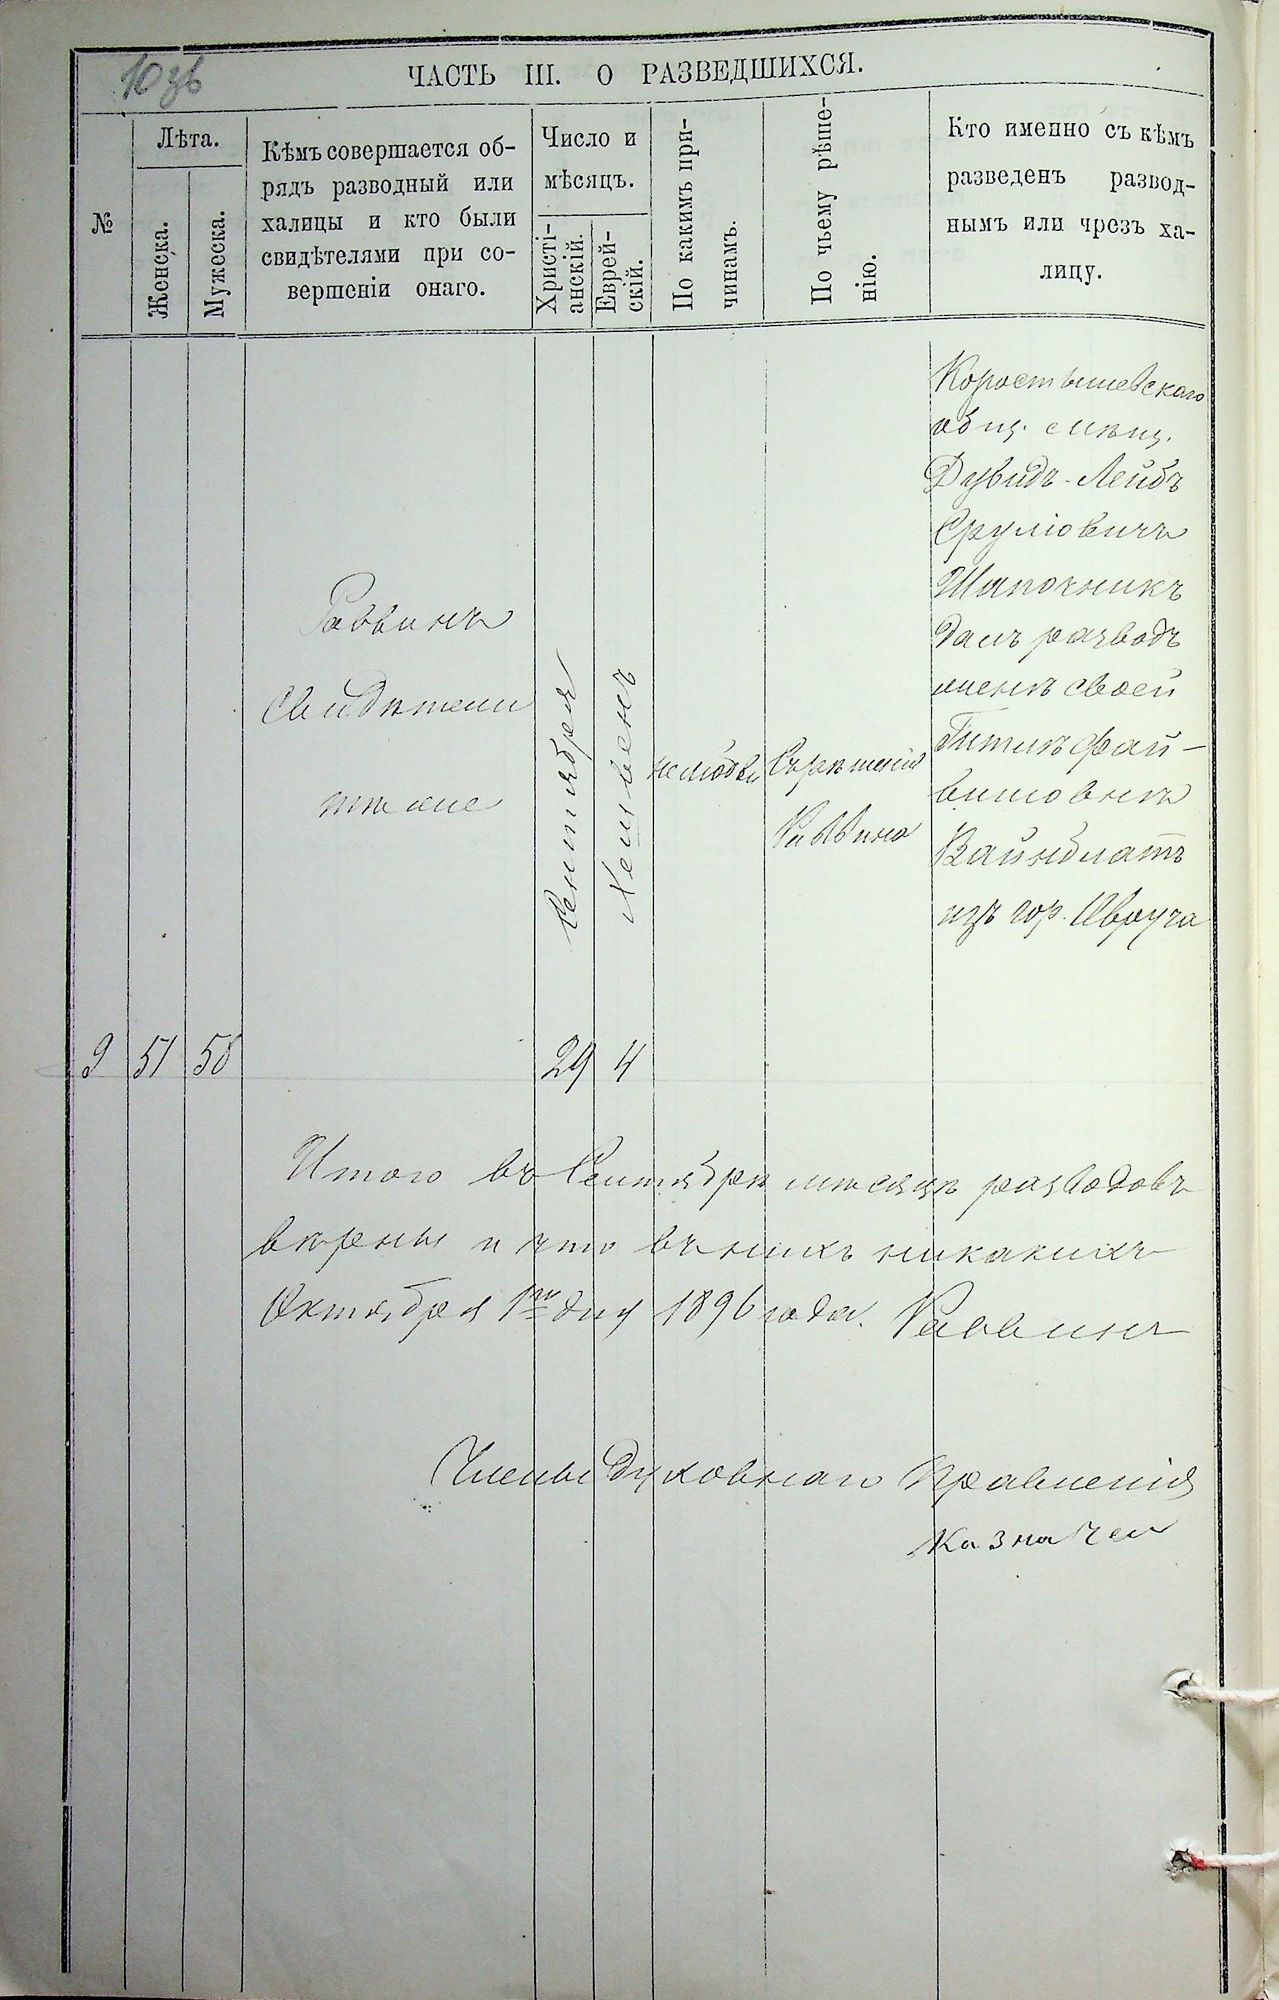 10зв
ЧАСТЬ III. О РАЗВЕДШИХСЯ.
№
Лѣта.
Женска.
Мужеска.
Кѣмъ совершается об-
рядъ разводный или
халицы и кто были
свидѣтелями при со-
вершеніи онаго.
Число и
мѣсяцъ.
Христі-
анскій.
Еврей-
скій.
По какимъ при-
чинамъ.
По чьему рѣше-
нію.
Кто именно съ кѣмъ
разведенъ развод-
нымъ или чрезъ ха-
лицу.
9
51
58
Раввинъ
Свидѣтели
тѣ же
Сентября
29
Хешвенъ
4
нелюбви
Съ рѣшенія
Раввина
Коростышевскаго
общ. мѣщ.
Дувидъ-Лейбъ
Сруліовичъ
Шапочникъ
далъ разводъ
женѣ своей
Гитлѣ Фай-
вишовнѣ
Вайнблатъ
изъ гор. Овруча
Итого въ Сентябрѣ мѣсяцѣ разводовъ
вѣрны и что въ нихъ никакихъ
Октября 1го дня 1896 года. Раввинъ
Члены Духовнаго Правленія
Казначей